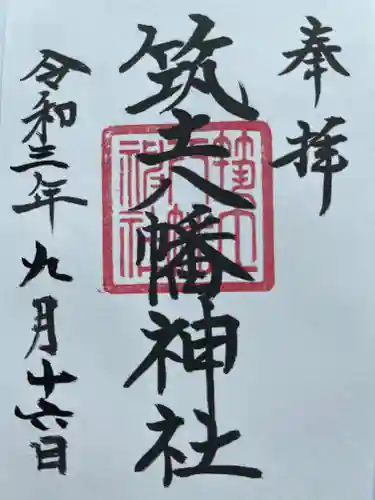 奉拝
筑土八幡神社
令和三年九月十六日